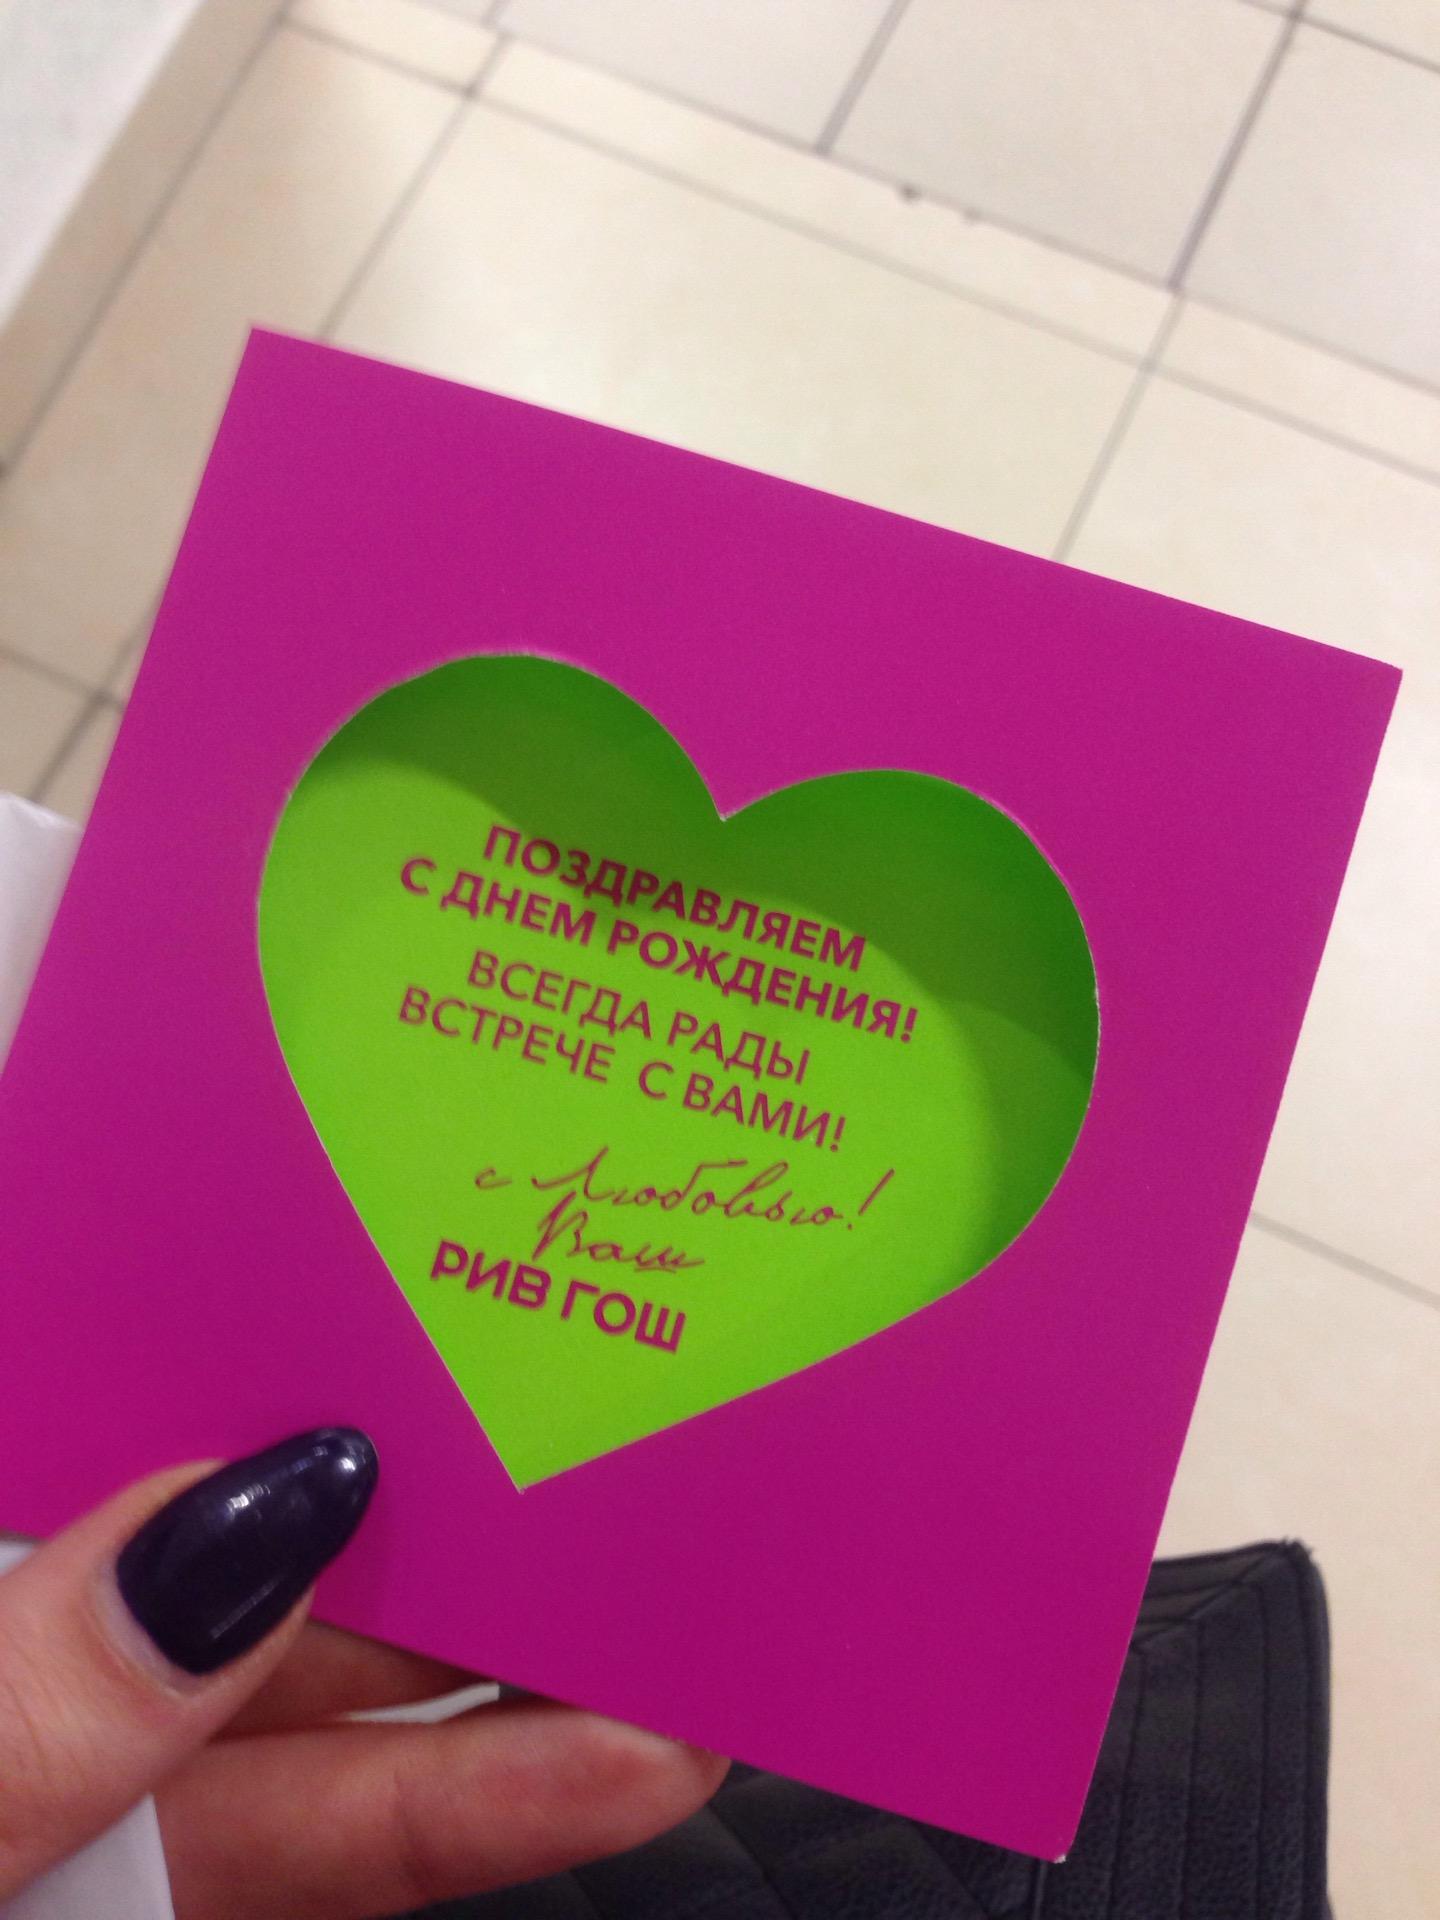 ПОЗДРАВЛЯЕМ
С ДНЕМ РОЖДЕНИЯ!
ВСЕГДА РАДЫ
ВСТРЕЧЕ С ВАМИ!
с Любовью!
Ваш
РИВ ГОШ